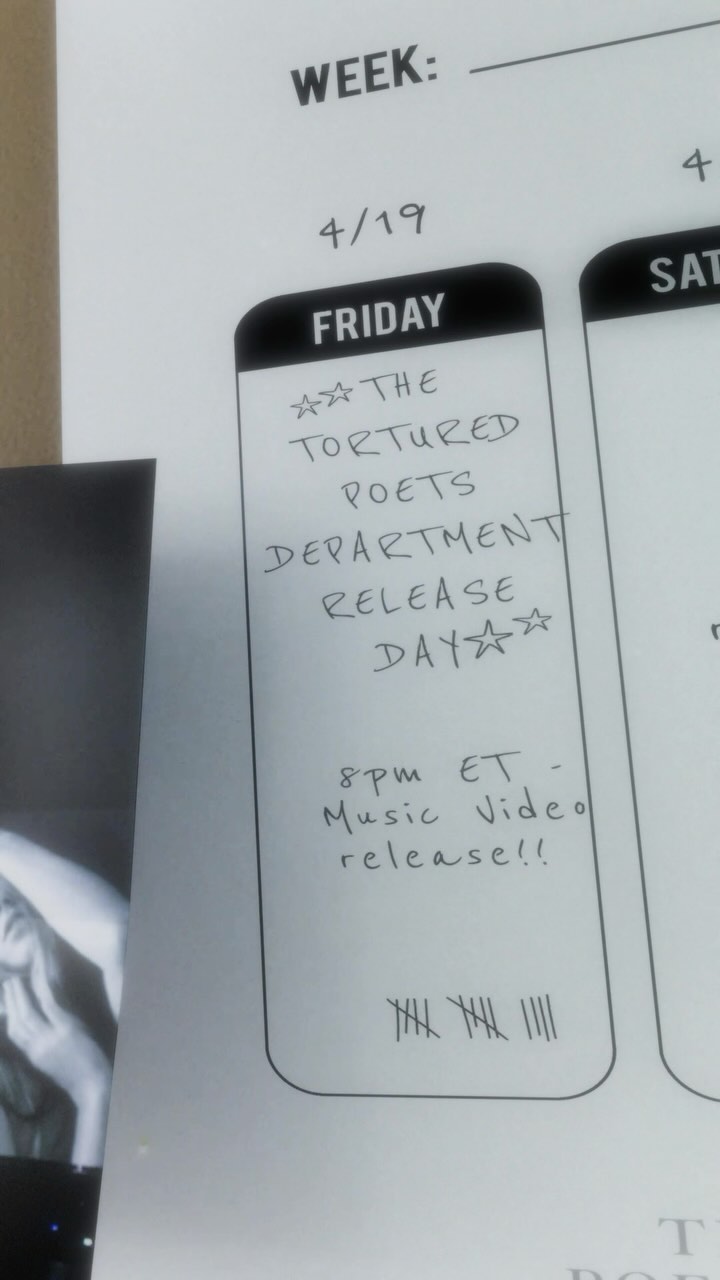 WEEK:
4/19
4
FRIDAY
SAT
☆☆THE
TORTURED
POETS
DEPARTMENT
RELEASE
DAY☆☆
8pm ET -
Music Video
release!!